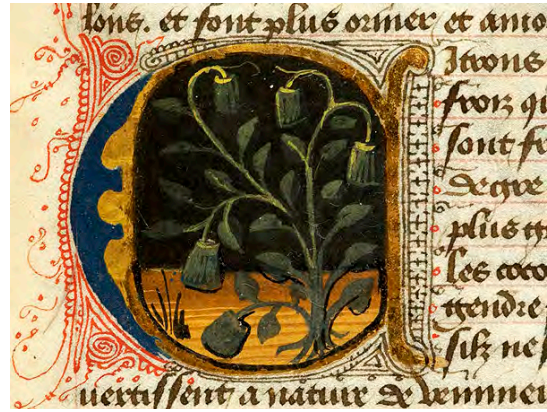 lons. et font plus oriner et amo
Citrons
frois qu
sont fr
degre
plus gr
les coco
gendre
silz ne s
uertissent a nature de vemmeu